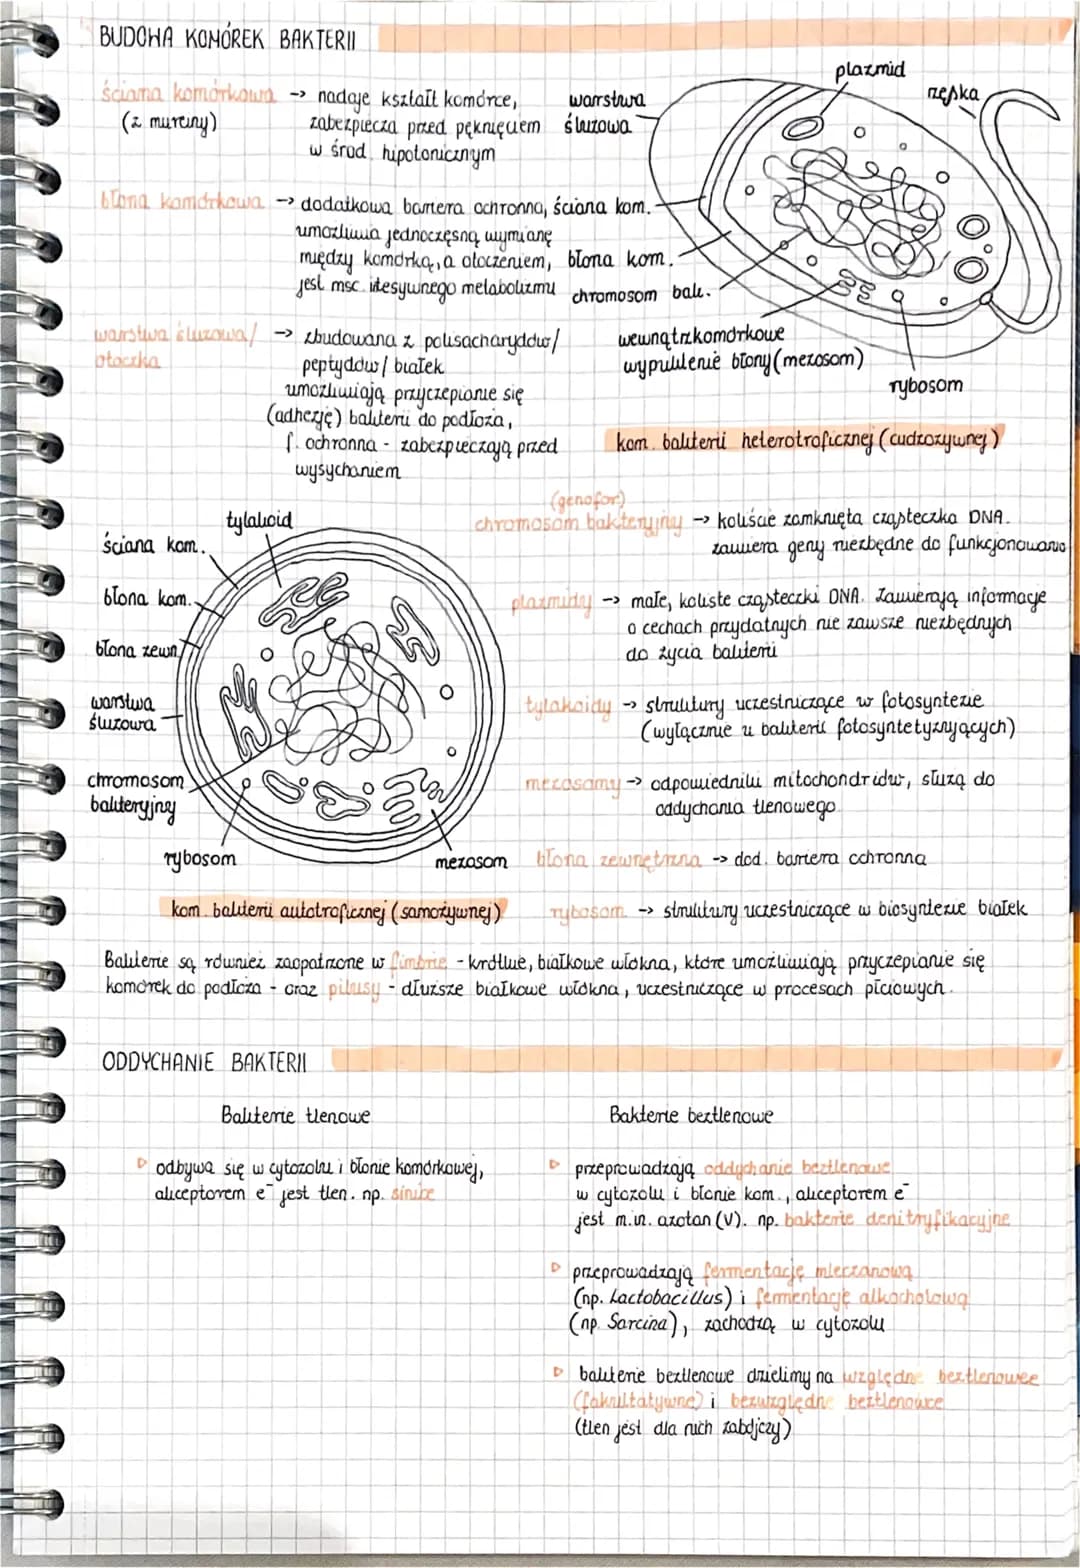 BUDOWA KOMÓREK BAKTERII
ściana komórkowa -> nadaje kształt komórce,
(z mureiny) zabezpiecza przed pęknięciem
w środ. hipotonicznym
błona komórkowa -> dodatkowa bariera ochronna,
umożliwia jednoczęsną wymianę
między komórką, a otoczeniem,
jest msc. itesywnego metabolizmu
warstwa śluzowa/ -> zbudowana z polisacharydów/
otoczka peptydów/ białek
umożliwiają przyczepianie się
(adhezję) bakterii do podłoża,
f. ochronna - zabezpieczają przed
wysychaniem
plazmid
rzęska
warstwa
śluzowa
ściana kom.
błona kom.
chromosom bak.
wewnątrzkomórkowe
wypuklenie błony (mezosom)
rybosom
kom. bakterii heterotroficznej (cudzożywnej)
tylakoid
ściana kom.
błona kom.
błona zewn.
warstwa
śluzowa
chromosom
bakteryjny
rybosom
mezosom
kom. bakterii autotroficznej (samożywnej)
(genofor)
chromosom bakteryjny -> koliście zamknięta cząsteczka DNA.
zawiera geny niezbędne do funkcjonowania
plazmidy -> małe, koliste cząsteczki DNA. Zawierają informacje
o cechach przydatnych nie zawsze niezbędnych
do życia bakterii
tylakoidy -> struktury uczestniczące w fotosyntezie
(wyłącznie u bakterii fotosyntetyzujących)
mezosomy -> odpowiedniki mitochondriów, służą do
oddychania tlenowego
błona zewnętrzna -> dod. bariera ochronna
rybosom -> struktury uczestniczące w biosyntezie białek
Bakterie są również zaopatrzone w fimbrie - krótkie, białkowe włókna, które umożliwiają przyczepianie się
komórek do podłoża - oraz pilusy - dłuższe białkowe włókna, uczestniczące w procesach płciowych.
ODDYCHANIE BAKTERII
Bakterie tlenowe
odbywa się w cytozolu i błonie komórkowej,
akceptorem e⁻ jest tlen. np. sinice
Bakterie beztlenowe
przeprowadzają oddychanie beztlenowe
w cytozolu i błonie kom., akceptorem e⁻
jest m.in. azotan (V). np. bakterie denitryfikacyjne
przeprowadzają fermentację mleczanową
(np. Lactobacillus) i fermentację alkoholową
(np. Sarcina), zachodzą w cytozolu
bakterie beztlenowe dzielimy na względne beztlenowce
(fakultatywne) i bezwzględne beztlenowce
(tlen jest dla nich zabójczy)